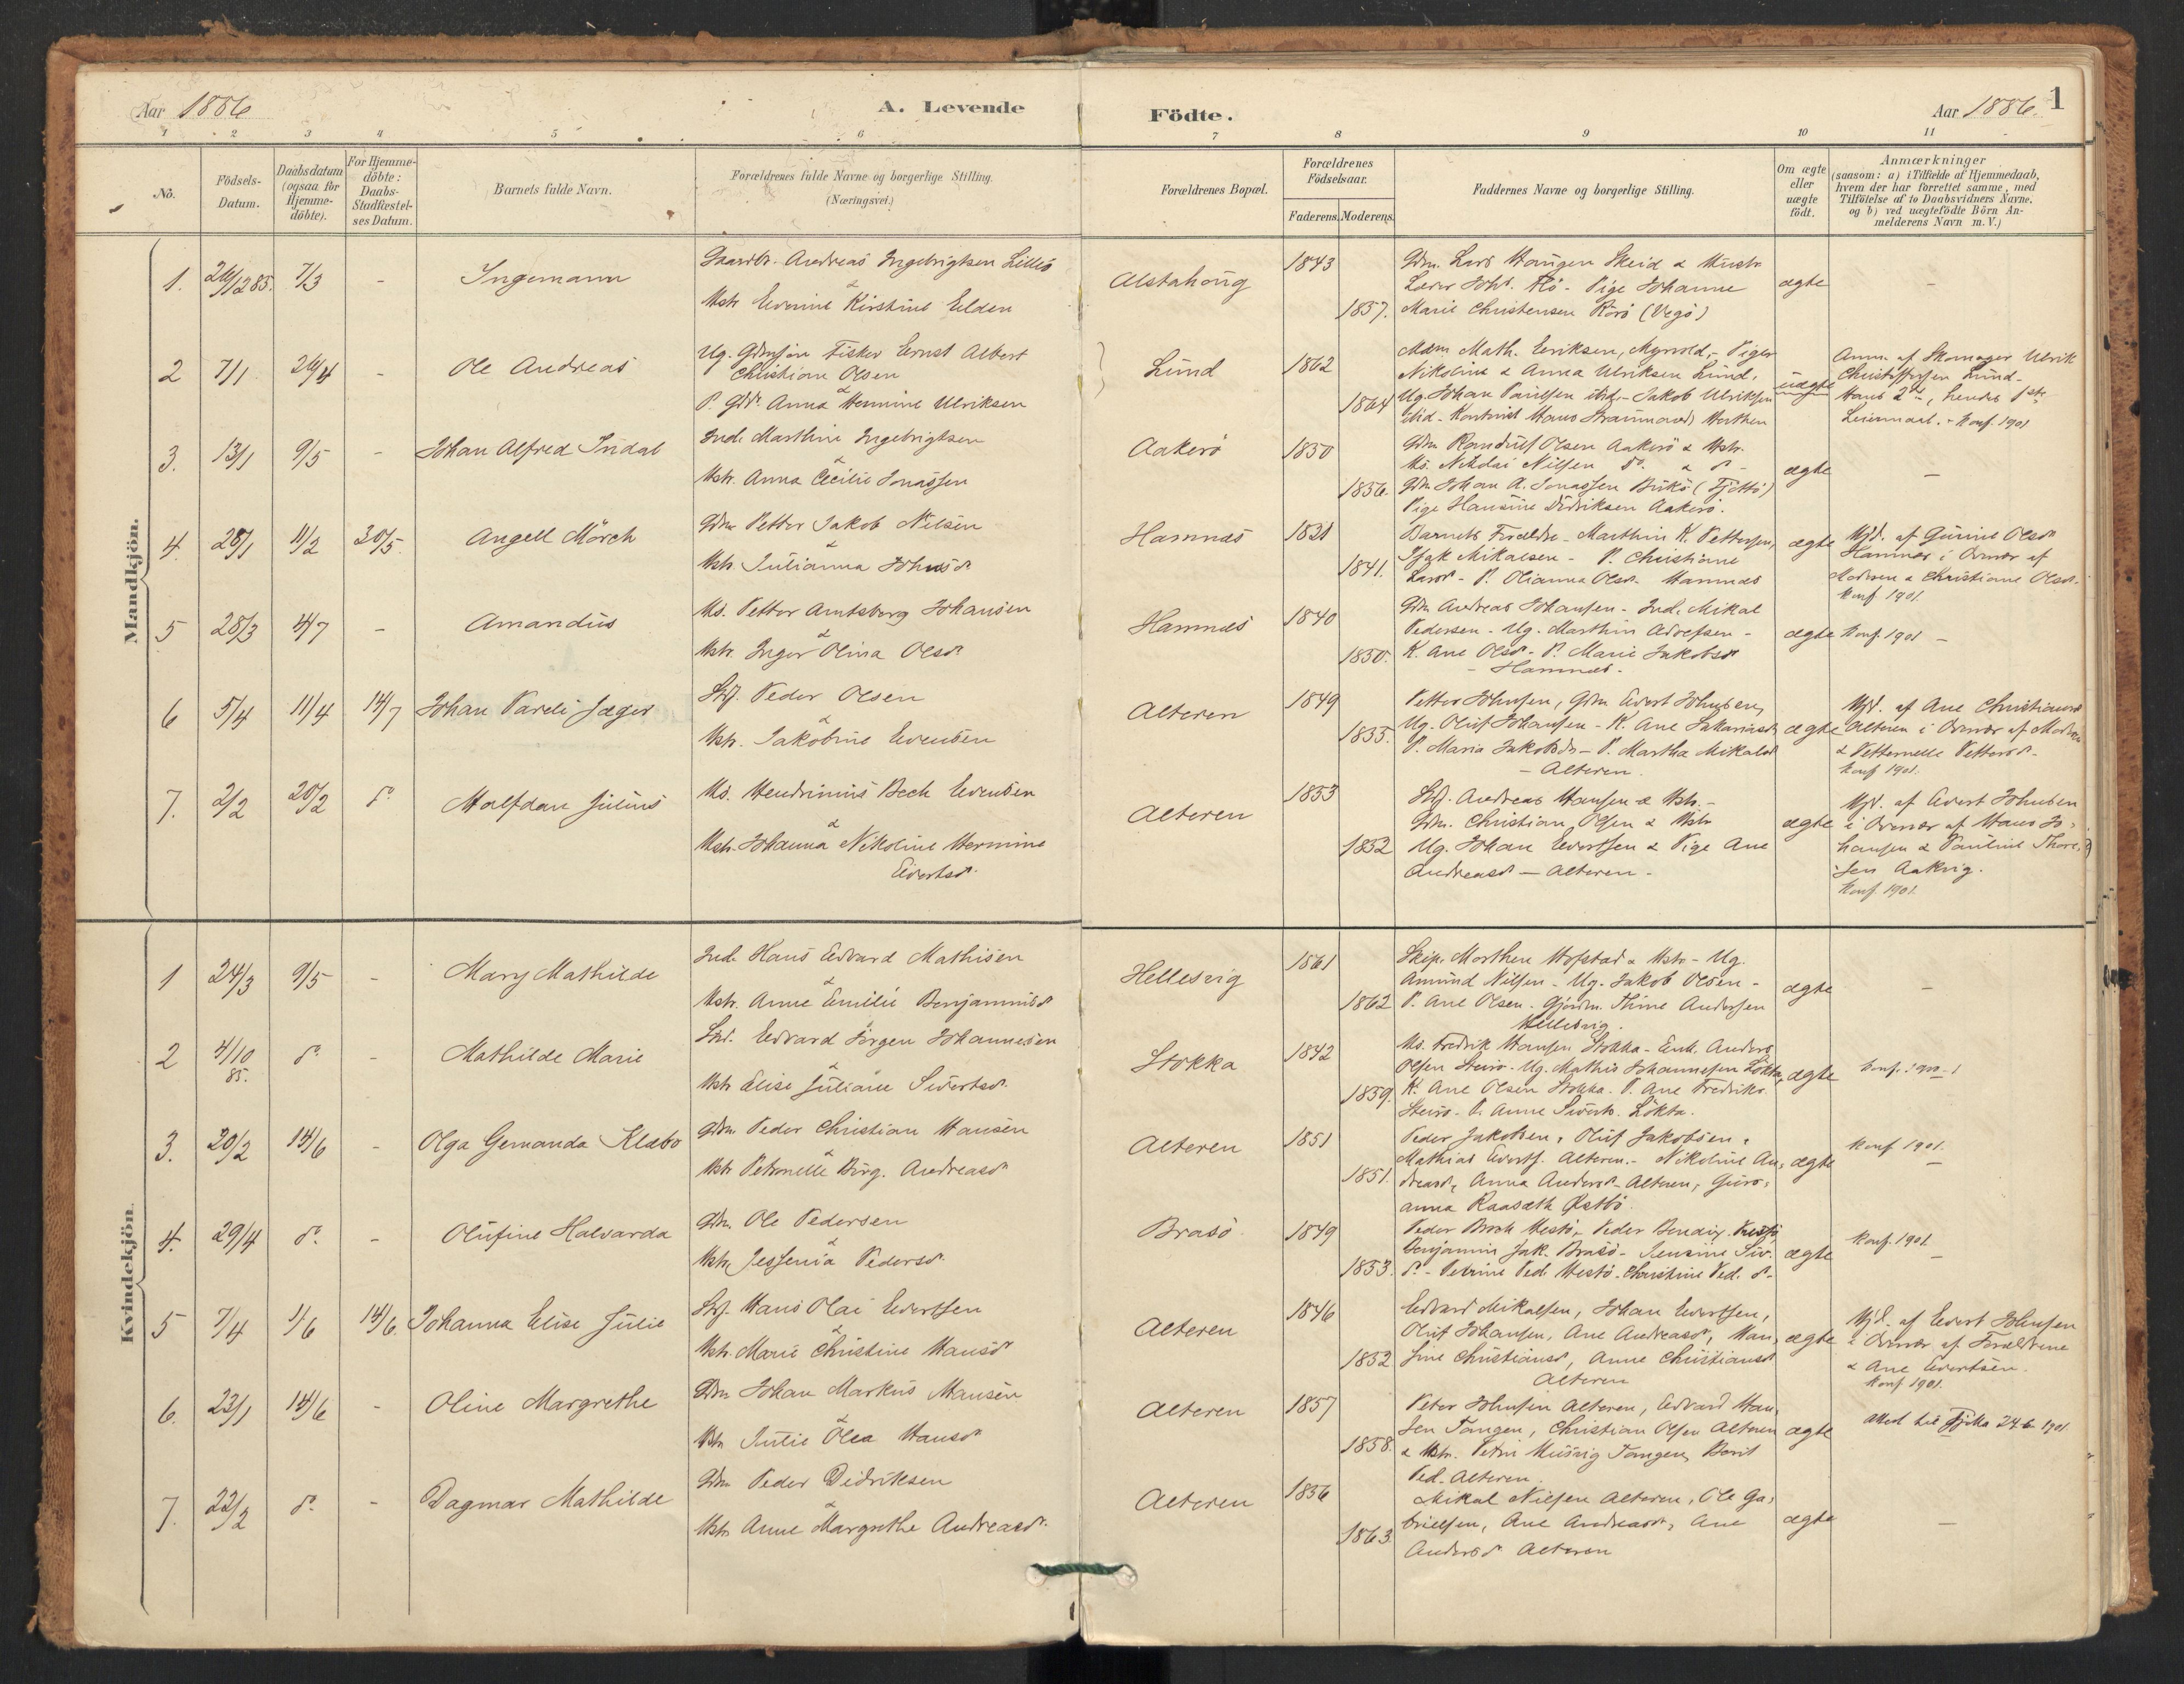 Aar 1886
A. Levende
Födte.
Aar 1886.
1
1 2 3 4 5 6 7 8 9 10 11
No.
Födsels-
Datum.
Daabsdatum
(ogsaa for
Hjemme-
döbte).
For Hjemme-
döbte:
Daabs-
Stadfæstel-
ses Datum.
Barnets fulde Navn.
Forældrenes fulde Navne og borgerlige Stilling.
(Næringsvei.)
Forældrenes Bopæl.
Forældrenes
Födselsaar.
Faderens. Moderens.
Faddernes Navne og borgerlige Stilling.
Om ægte
eller
uægte
födt.
Anmærkninger
(saasom: a) i Tilfælde af Hjemmedaab,
hvem der har forrettet samme, med
Tilföielse af to Daabsvidners Navne.
og b) ved uægtefödte Börn An-
melderens Navn m. V.)
Mandkjön.
1. 26/12 85. 7/3 - Ingemann
Gaardbr. Andreas Ingebrigtsen
&
Hstr. Everine Kirstine Elden
Alstahoug
1843
1857.
Gdm. Lars Haugen Skeid & Hustr
Johs. Flö - Pige Johanne
Marie Christensen Rörö (Vegö)
ægte
-
2 7/1 26/4 - Ole Andreas
Ug. Gdmsön Fisker Ernst Albert
Christian Olsen
&
P. Gdd. Anna Hennine Ulriksen
Lund
1862
1864
Mdm Math. Eriksen, Myrvold, - Piger
Nikoline & Anna Ulriksen Lund,
Ug. Johan Paulsen ibid, - Jakob Ulriksen
ibid - Hans
uægte
Anm. af Skomager Ulrik
Christoffersen Lund -
Hans 2det, hendes 1ste
Leiermaal. - Konf. 1901
3. 13/1 9/5 - Johan Alfred Indal
Ind. Marthin Ingebrigtsen
&
Hstr. Anna Cecilie Jonassen
Aakerö
1850
1856.
Gdm Randulf Olsen Aakerö & Hstr.
Ks. Nikolai Nilsen do. & do -
Gdm Johan A. Jonassen Bukö (Tjöttö)
Pige Hansine Didriksen Aakerö.
ægte
-
4. 28/1 11/2 30/5. Angell Mörch
Gdm Petter Jakob Nilsen
&
Hstr. Julianna Johnsd.
Hamnæs
1831
1841.
Barnets Forældre - Marthin K. Pettersen,
Isak Mikalsen - P. Christiane
Larsd - P. Olianna Olsd. Hamnæs
ægte
Hjd. af Gurine Olsd
Hamnæs i Overvær af
Moderen & Christiane Olsd.
Konf. 1901.
5 28/3 4/7 - Amandus
Ks. Petter Amtsberg Johansen
&
Hstr. Inger Olina Olsd.
Hamnæs
1840
1850.
Gdm Andreas Johansen - Ind. Mikal
Pedersen - Ug. Marthin Adolfsen -
K. Ane Olsd - P. Marie Jakobsd
- Hamnæs -
ægte
Konf. 1901 -
6 5/4 11/4 14/7 Johan Pareli Jæger
Strf. Peder Olsen
&
Hstr. Jakobine Evensen
Alteren
1849
1855.
Petter Johnsen, Gdm Evert Johnsen,
Ug. Oluf Johansen - K. Ane Sakariasd
P. Maria Jakobsd - P. Martha Mikalsd
- Alteren.
ægte
Hjd. af Ane Christiansd
Alteren i Overvær af Moderen
& Petternelle Pettersd. -
Konf 1901.
7. 2/2 20/2 do. Halfdan Julius
Ks. Hendrinus Bech Evensen
&
Hstr. Johanna Nikoline Hermine
Evertsd.
Alteren
1853
1852
Strf. Andreas Hansen & Hstr. -
Gdm. Christian Olsen & Hstr
Ug. Johan Evertsen & Pige Ane
Andreasd - Alteren -
ægte
Hjd. af Evert Johnsen
i Overvær af Hans Jo-
hansen & Pauline Thore-
sen Aakvig.
Konf. 1901.
Kvindekjön.
1 24/3 9/5 - Mary Mathilde
Ind. Hans Edvard Mathisen
&
Hstr. Anne Emilie Benjaminsd
Hellesvig
1861
1862
Skip. Morthen Hofstad & Hstr - Ug.
Amund Nilsen - Ug. Jakob Olsen -
P. Ane Olsen - Gjordm. Thine Andersen
Hellesvig.
ægte
-
2 4/10 85. do. - Mathilde Marie
Strd. Edvard Jörgen Johannesen
&
Hstr Elise Juliane Sivertsd.
Stokka
1842
1859.
Ks. Fredrik Hansen Stokka - Enk. Anders
Olsen Steiro - Ug. Mathis Johannesen Lökta,
K. Ane Olsen Stokka - P. Ane Fredriks.
Steiro - P. Anne Sivert. Lökta.
ægte
Konf. 1900 - 1
3. 20/2 14/6 - Olga Gemanda Klæbo
Gdm. Peder Christian Hansen
&
Hstr Petronelle Birg. Andreasd
Alteren
1851
1851.
Peder Jakobsen, Oluf Jakobsen,
Mathias Everts. Alteren. - Nikoline An-
dreasd, Anna Andersd - Alteren, Guro-
anna Raasæth Østbö
ægte
Konf 1901.
-
4. 29/4 do. - Olufine Halvarda
Gdm. Ole Pedersen
&
Hstr, Jessenia Pedersd.
Brasö
1849
1853.
Peder Broch Hestö, Peder Bendix. Hestö
Benjamin Jak. Brasö - Jensine Siv.
do. - Petrine Ped. Hestö. Christine Ped. do -
ægte
Konf. 1901.
-
5 7/4 1/6 14/6. Johanna Elise Julie
Strf. Hans Olai Evertsen
&
Hstr. Marie Christine Hansd
Alteren
1846
1852
Edvard Mikalsen, Johan Evertsen,
Oluf Johansen, Ane Andreasd, Han-
sine Christiansd, Anne Christiansd
Alteren
ægte
Hjd. af Evert Johnsen
i Overvær af Forældrene
& Ane Evertsen.
Konf 1901.
6. 23/1 14/6 - Oline Margrethe
Gdm Johan Markus Hansen
&
Hstr Julie Olea Hansd
Alteren
1857
1858.
Peter Johnsen Alteren, Edvard Han-
sen Tangen, Christian Olsen Alteren
& Hstr. Petri Husvig Tangen, Berit
Ped. Alteren.
ægte
Attest til Tjötta 24-6 1901
7. 22/2 do. - Dagmar Mathilde
Gdm Peder Didriksen
&
Hstr Anne Margrethe Andreasd.
Alteren
1856
1863.
Mikal Nilsen Alteren, Ole Ga-
brielsen, Ane Andreasd, Ane
Andersd Alteren
ægte
-